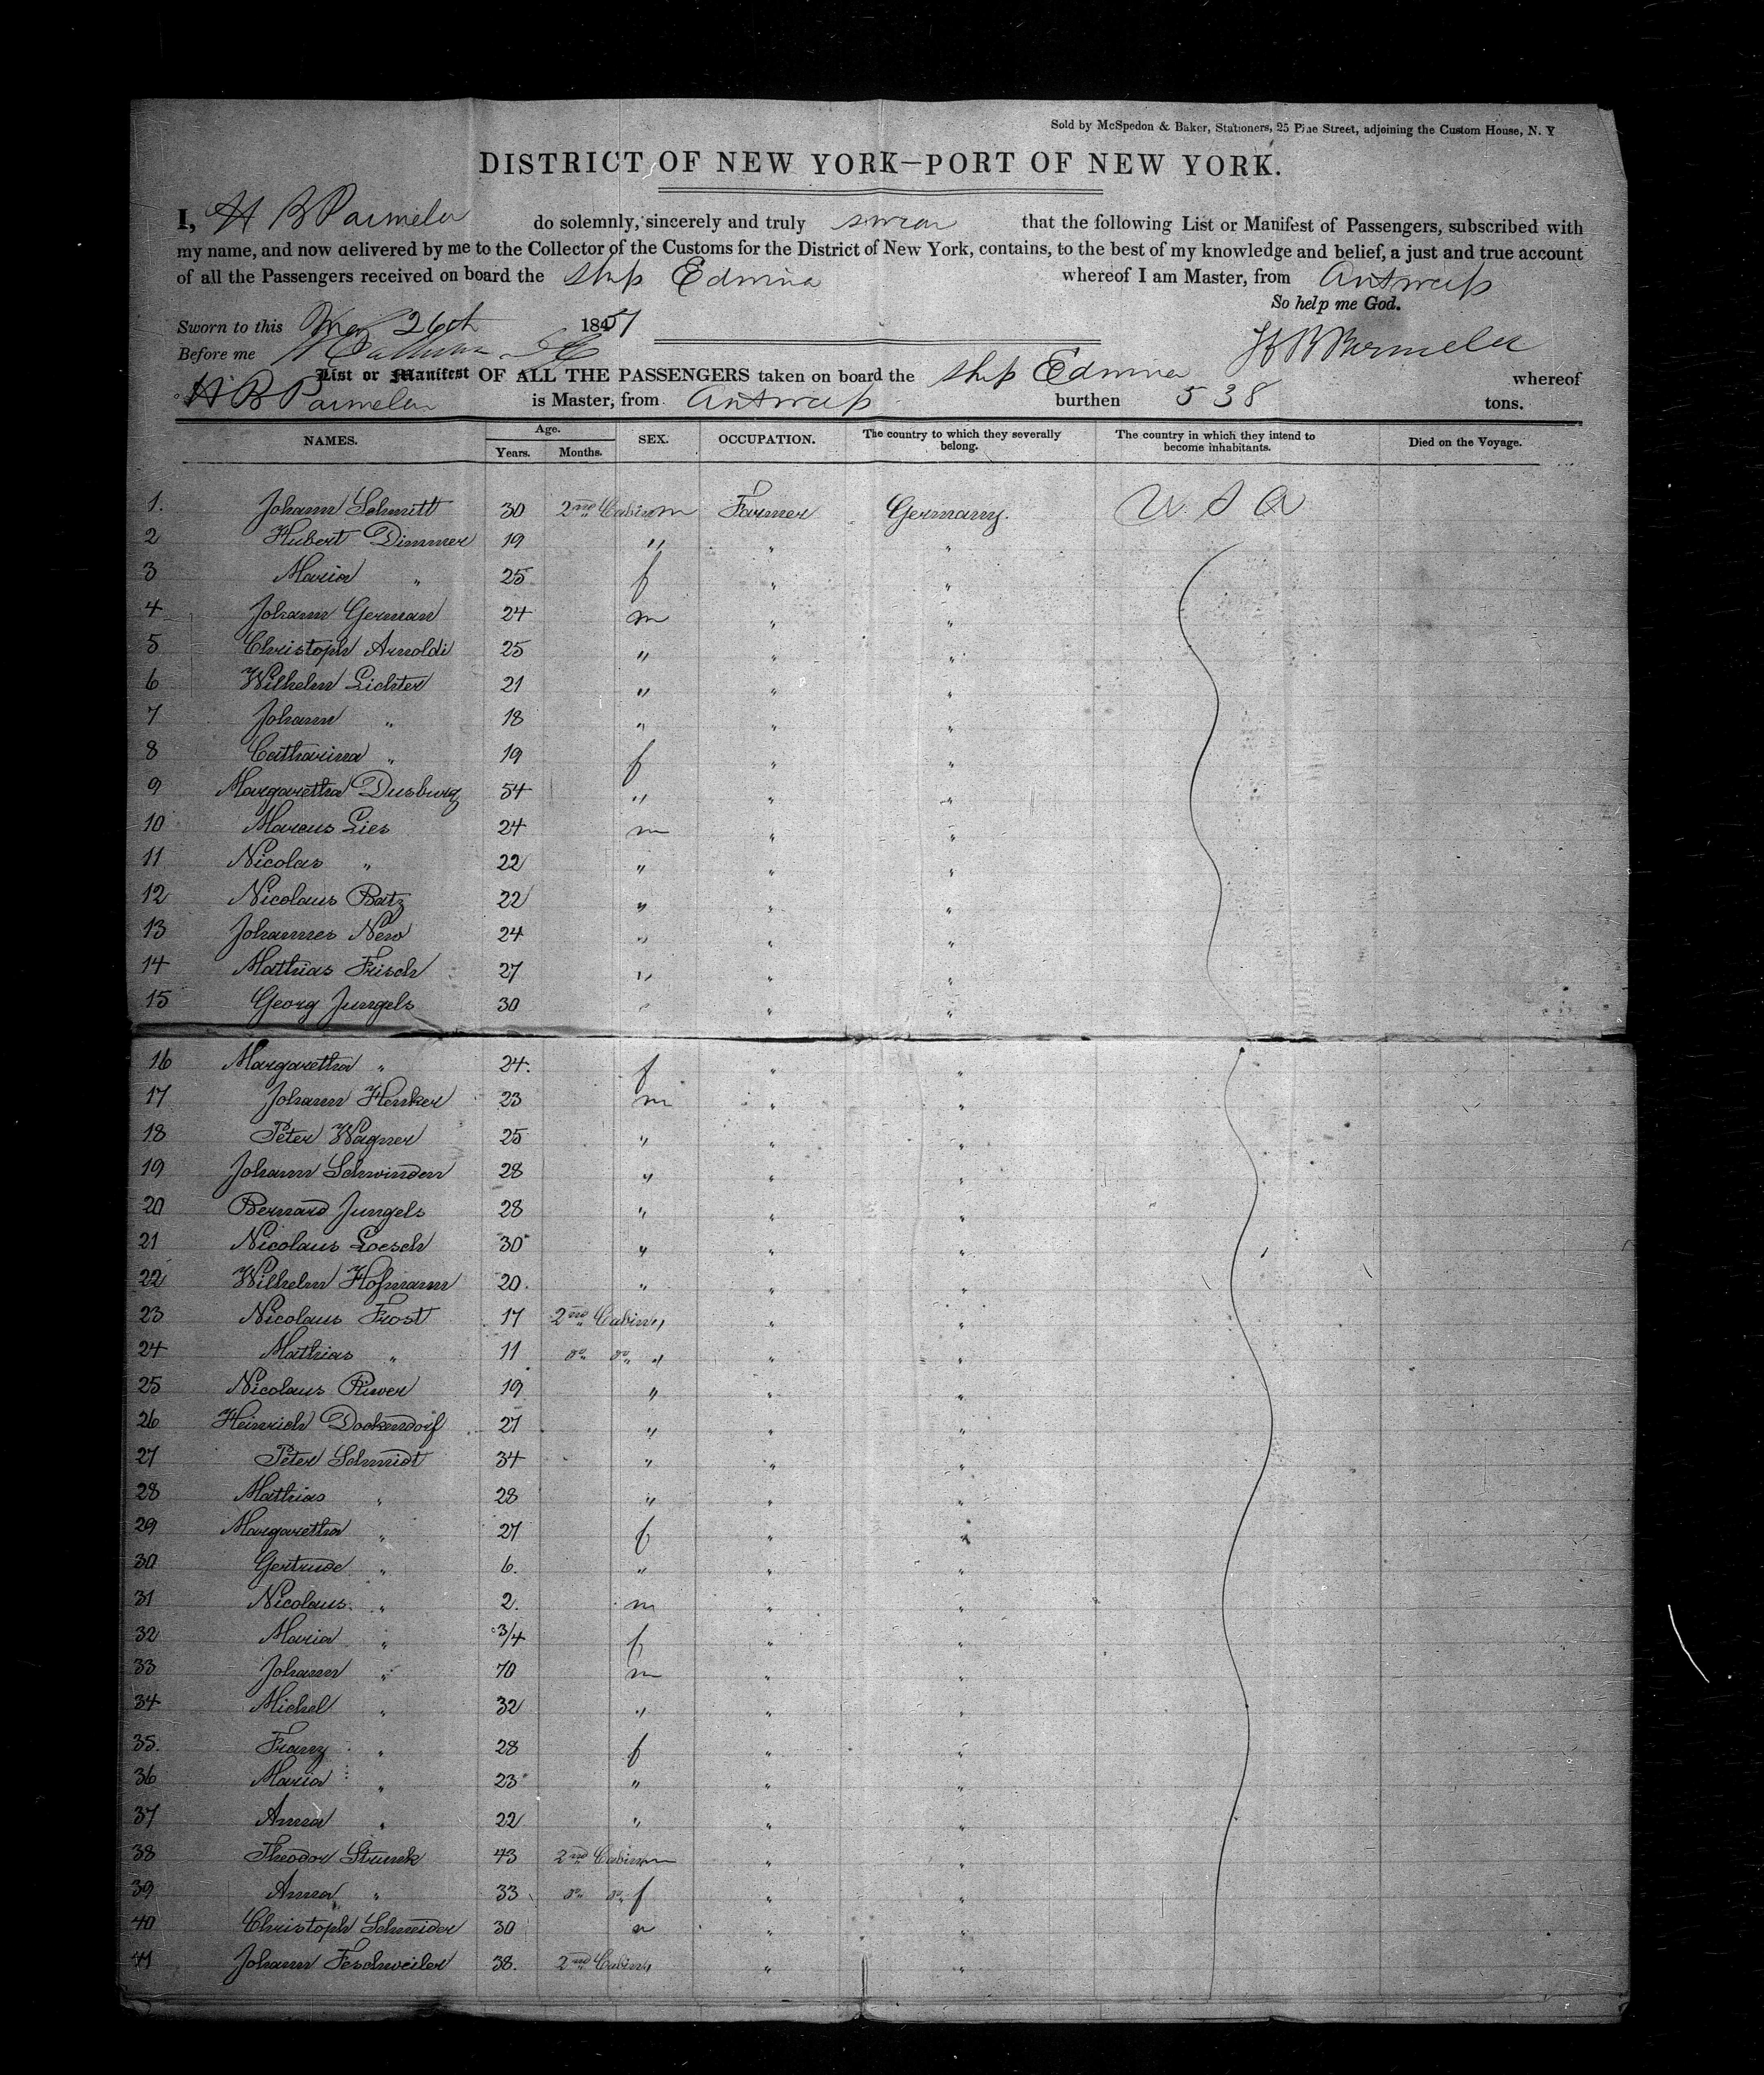 Sold by McSpedon & Baker, Stationers, 25 Pine Street, adjoining the Custom House, N. Y
DISTRICT OF NEW YORK—PORT OF NEW YORK.
I, H B Parmelee do solemnly, sincerely and truly swear that the following List or Manifest of Passengers, subscribed with
my name, and now delivered by me to the Collector of the Customs for the District of New York, contains, to the best of my knowledge and belief, a just and true account
of all the Passengers received on board the Ship Edwina whereof I am Master, from Antwerp
So help me God.
Sworn to this 26th 1851
Before me H B Parmelee
List or Manifest OF ALL THE PASSENGERS taken on board the Ship Edwina whereof
H B Parmelee is Master, from Antwerp burthen 538 tons.
NAMES. Age. Years. Months. SEX. OCCUPATION. The country to which they severally belong. The country in which they intend to become inhabitants. Died on the Voyage.
1. Johann Schmitt 30 2nd Cabin m Farmer Germany. U S A
2 Hubert Dimmer 19 " " "
3 Maria " 25 f " "
4 Johann German 24 m " "
5 Christoph Arnoldi 25 " " "
6 Wilhelm Lichter 21 " " "
7 Johann " 18 " " "
8 Catharina " 19 f " "
9 Margaretha Dusburg 54 " " "
10 Marcus Lies 24 m " "
11 Nicolas " 22 " " "
12 Nicolaus Batz 22 " " "
13 Johannes New 24 " " "
14 Mathias Frisch 27 " " "
15 Georg Jungels 30 " " "
16 Margaretha " 24. f " "
17 Johann Henker 23 m " "
18 Peter Wagner 25 " " "
19 Johann Schwinden 28 " " "
20 Bernard Jungels 28 " " "
21 Nicolaus Loesch 30 " " "
22 Wilhelm Hofmann 20. " " "
23 Nicolaus Frost 17 2nd Cabin " " "
24 Mathias " 11 do do " " "
25 Nicolaus Riwer 19 " " "
26 Heinrich Dockendorf 27 " " "
27 Peter Schmidt 34 " " "
28 Mathias " 28 " " "
29 Margaretha " 27 f " "
30 Gertrude " 6. " " "
31 Nicolaus " 2. m " "
32 Maria " 3/4 f " "
33 Johann " 70 m " "
34 Michel " 32 " " "
35. Franz " 28 f " "
36 Maria " 23 " " "
37 Anna " 22 " " "
38 Theodor Strunk 43 2nd Cabin m " "
39 Anna " 33 do do f " "
40 Christoph Schneider 30 m " "
41 Johann Feschweiler 38. 2nd Cabin " " "